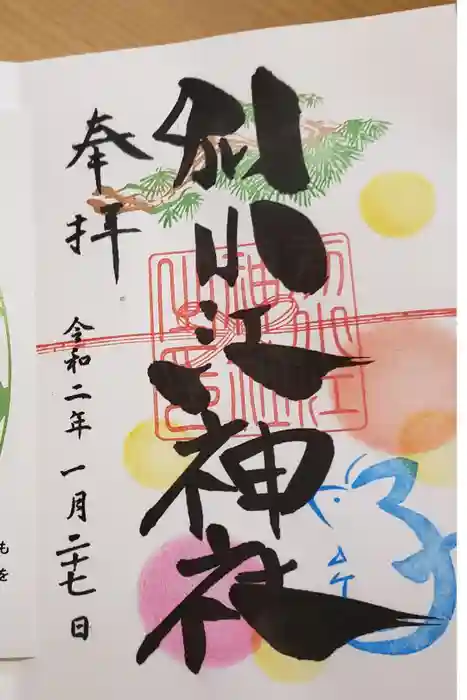 別小江神社
奉拝
令和二年一月二十七日
子
も
を